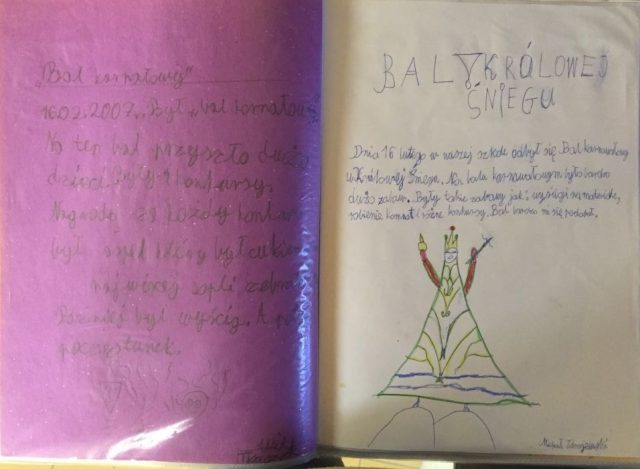 „Bal karnałowy"
16.02.2007. Był „bal karnałow
Na ten bal przyszło dużo
dzieci. Były 4 konkursy.
Nagrodą za każdy konkurs
był sopel który był cukier
najwięcej sopli zebrał
Potem był wyścig. A po
poczęstunek.
BAL U KRÓLOWEJ
ŚNIEGU
Dnia 16 lutego w naszej szkole odbył się Bal karnawałowy
u Królowej Śniegu. Na balu karnawałowym było bardzo
dużo zabaw. Były takie zabawy jak: wyścigi na
robienie i różne konkursy. Bal bardzo mi się podobał.
Michał